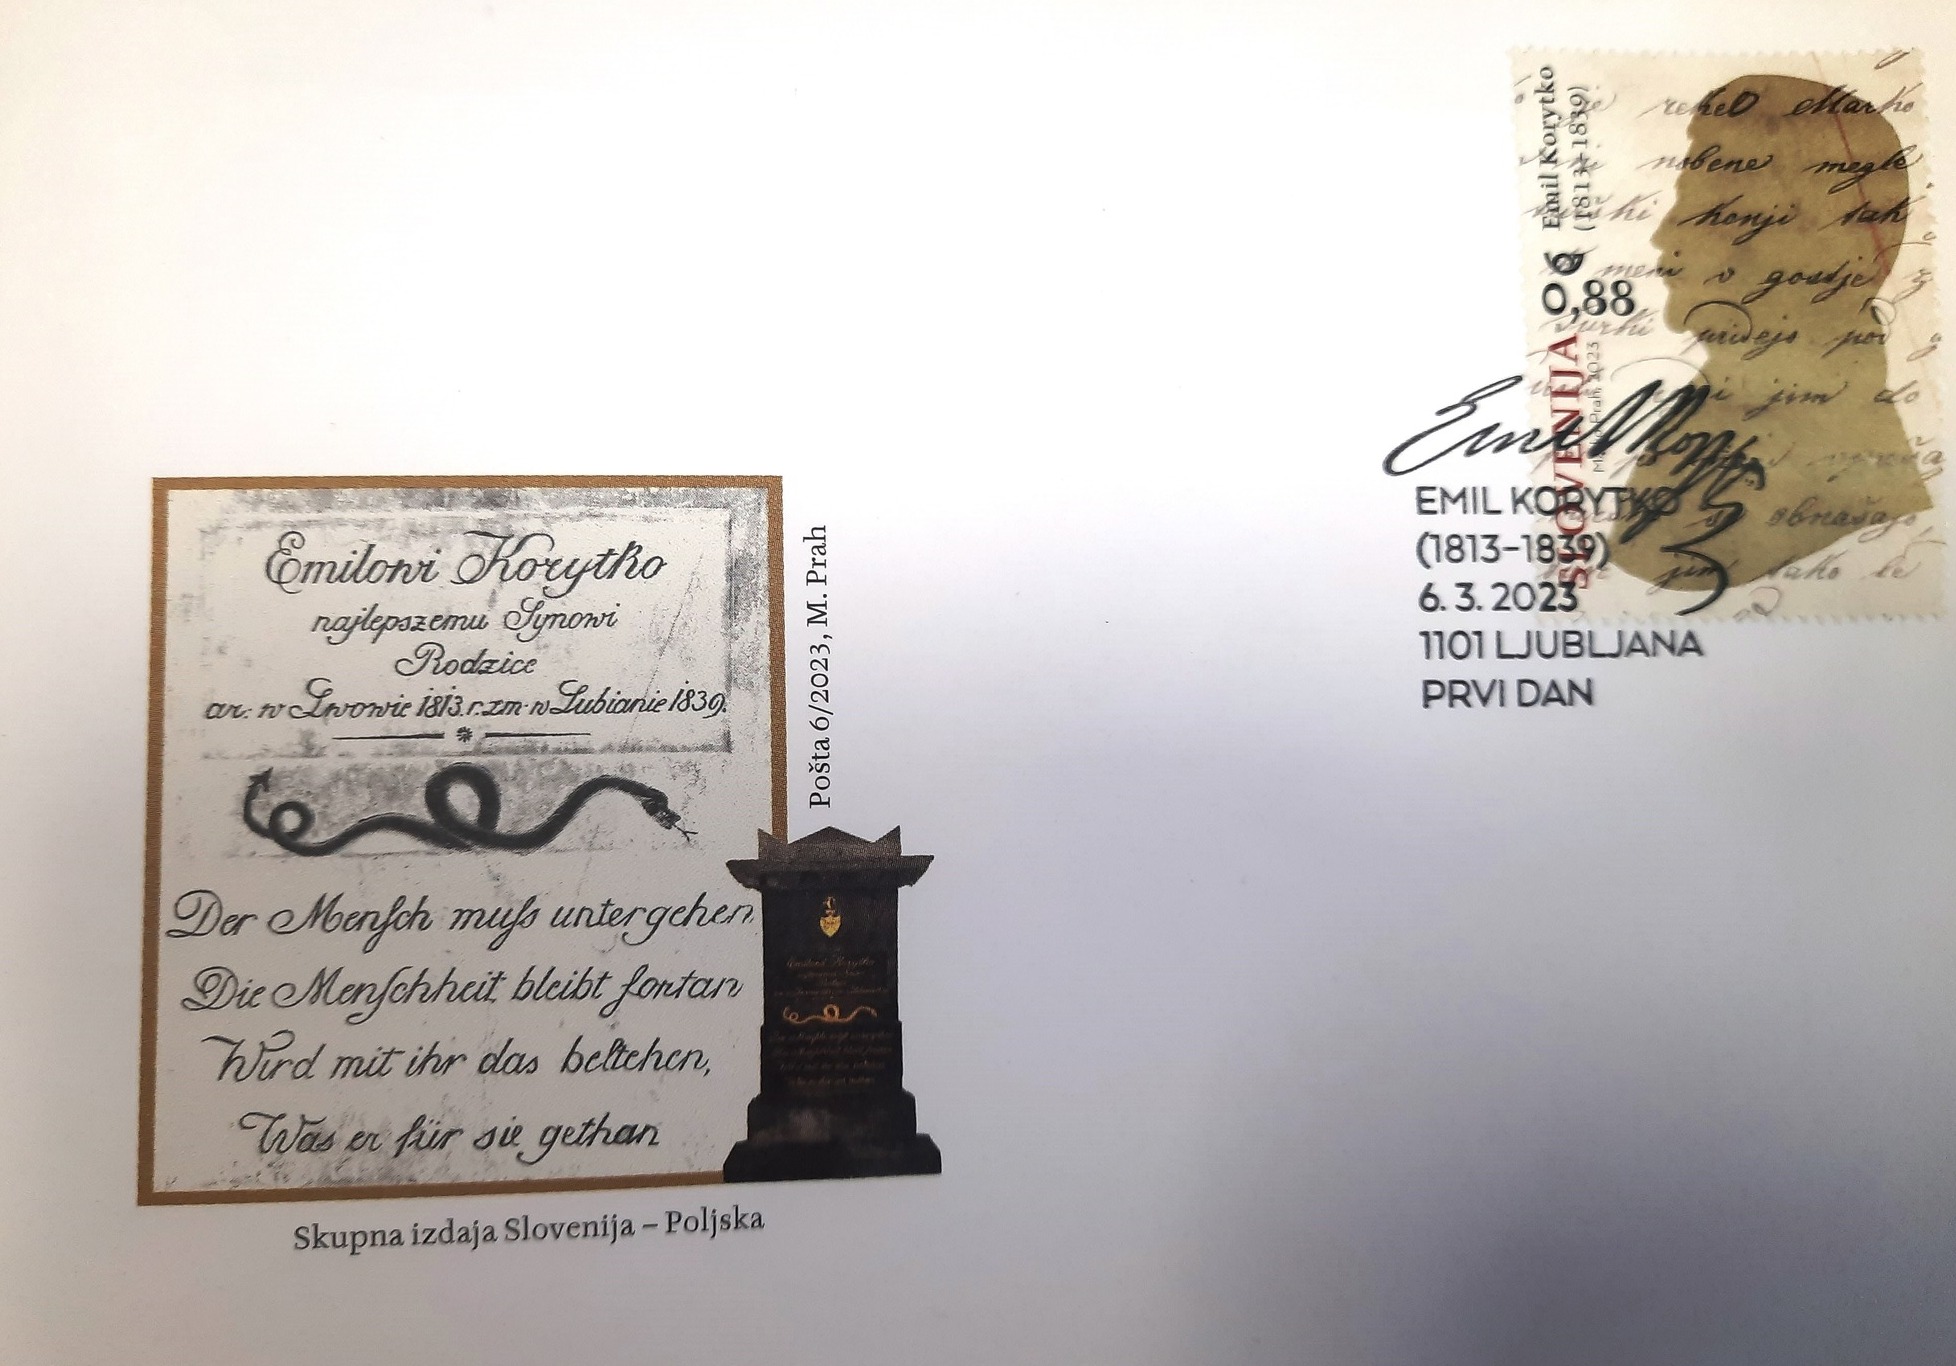 Emil Korytko
(1813–1839)
€ 0,88
SLOVENIJA
rekel Marko
nobene megle
konji tak
meni v gostje
Turki pridejo pod
jim do
obnašajo
jim tako le
EMIL KORYTKO
(1813–1839)
6. 3. 2023
1101 LJUBLJANA
PRVI DAN
Emilowi Korytko
najlepszemu Synowi
Rodzice
ur: w Lwowie 1813. r. zm. w Lubianie 1839.
Der Menſch muſs untergehen
Die Menſchheit bleibt fortan
Wird mit ihr das beſtehen,
Was er für sie gethan
Pošta 6/2023, M. Prah
Skupna izdaja Slovenija – Poljska